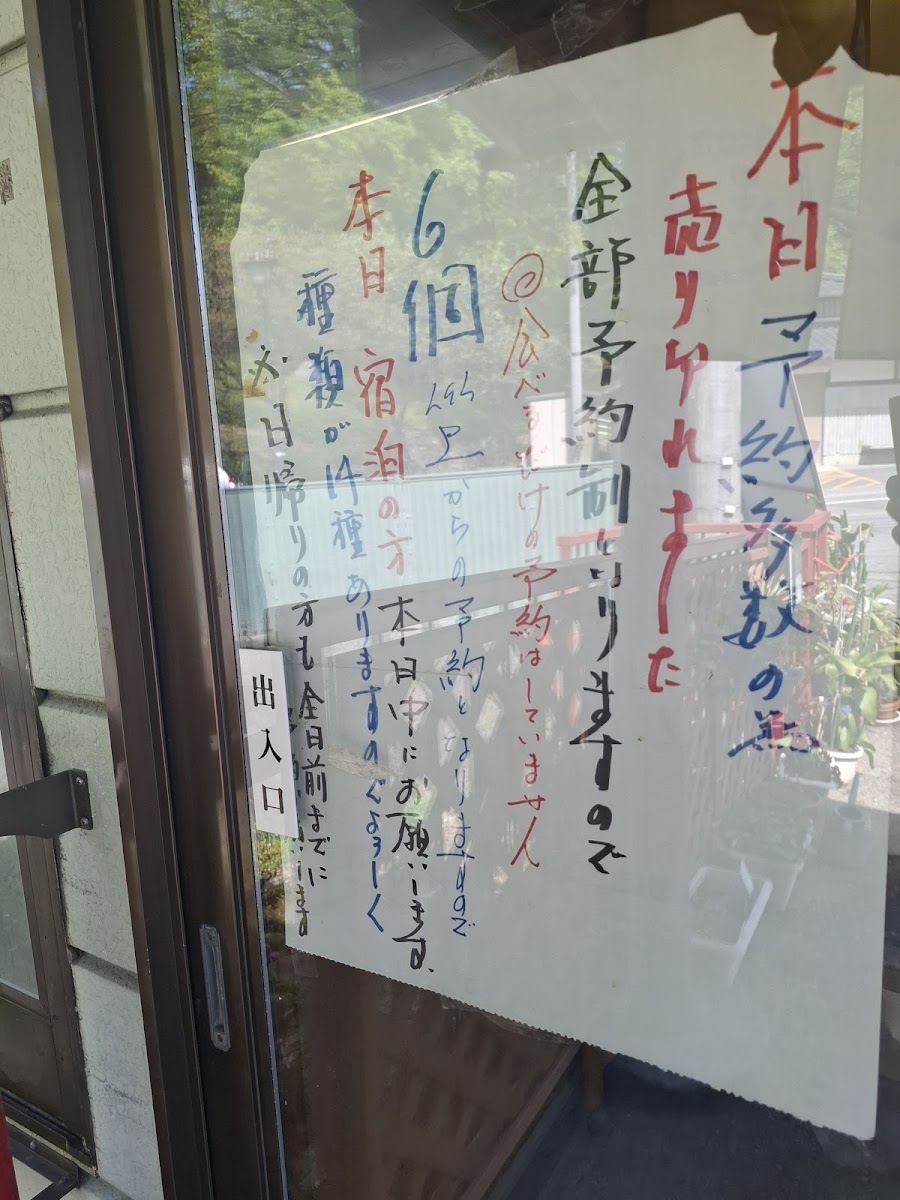 本日予約多数の為
売り切れました
全部予約制となりますので
◎食べるだけの予約はしていません
6個以上からの予約となりますので
本日宿泊の方 本日中にお願いします。
種類が14種ありますのでよろしく
※日帰りの方も全日前までに
します
出入口